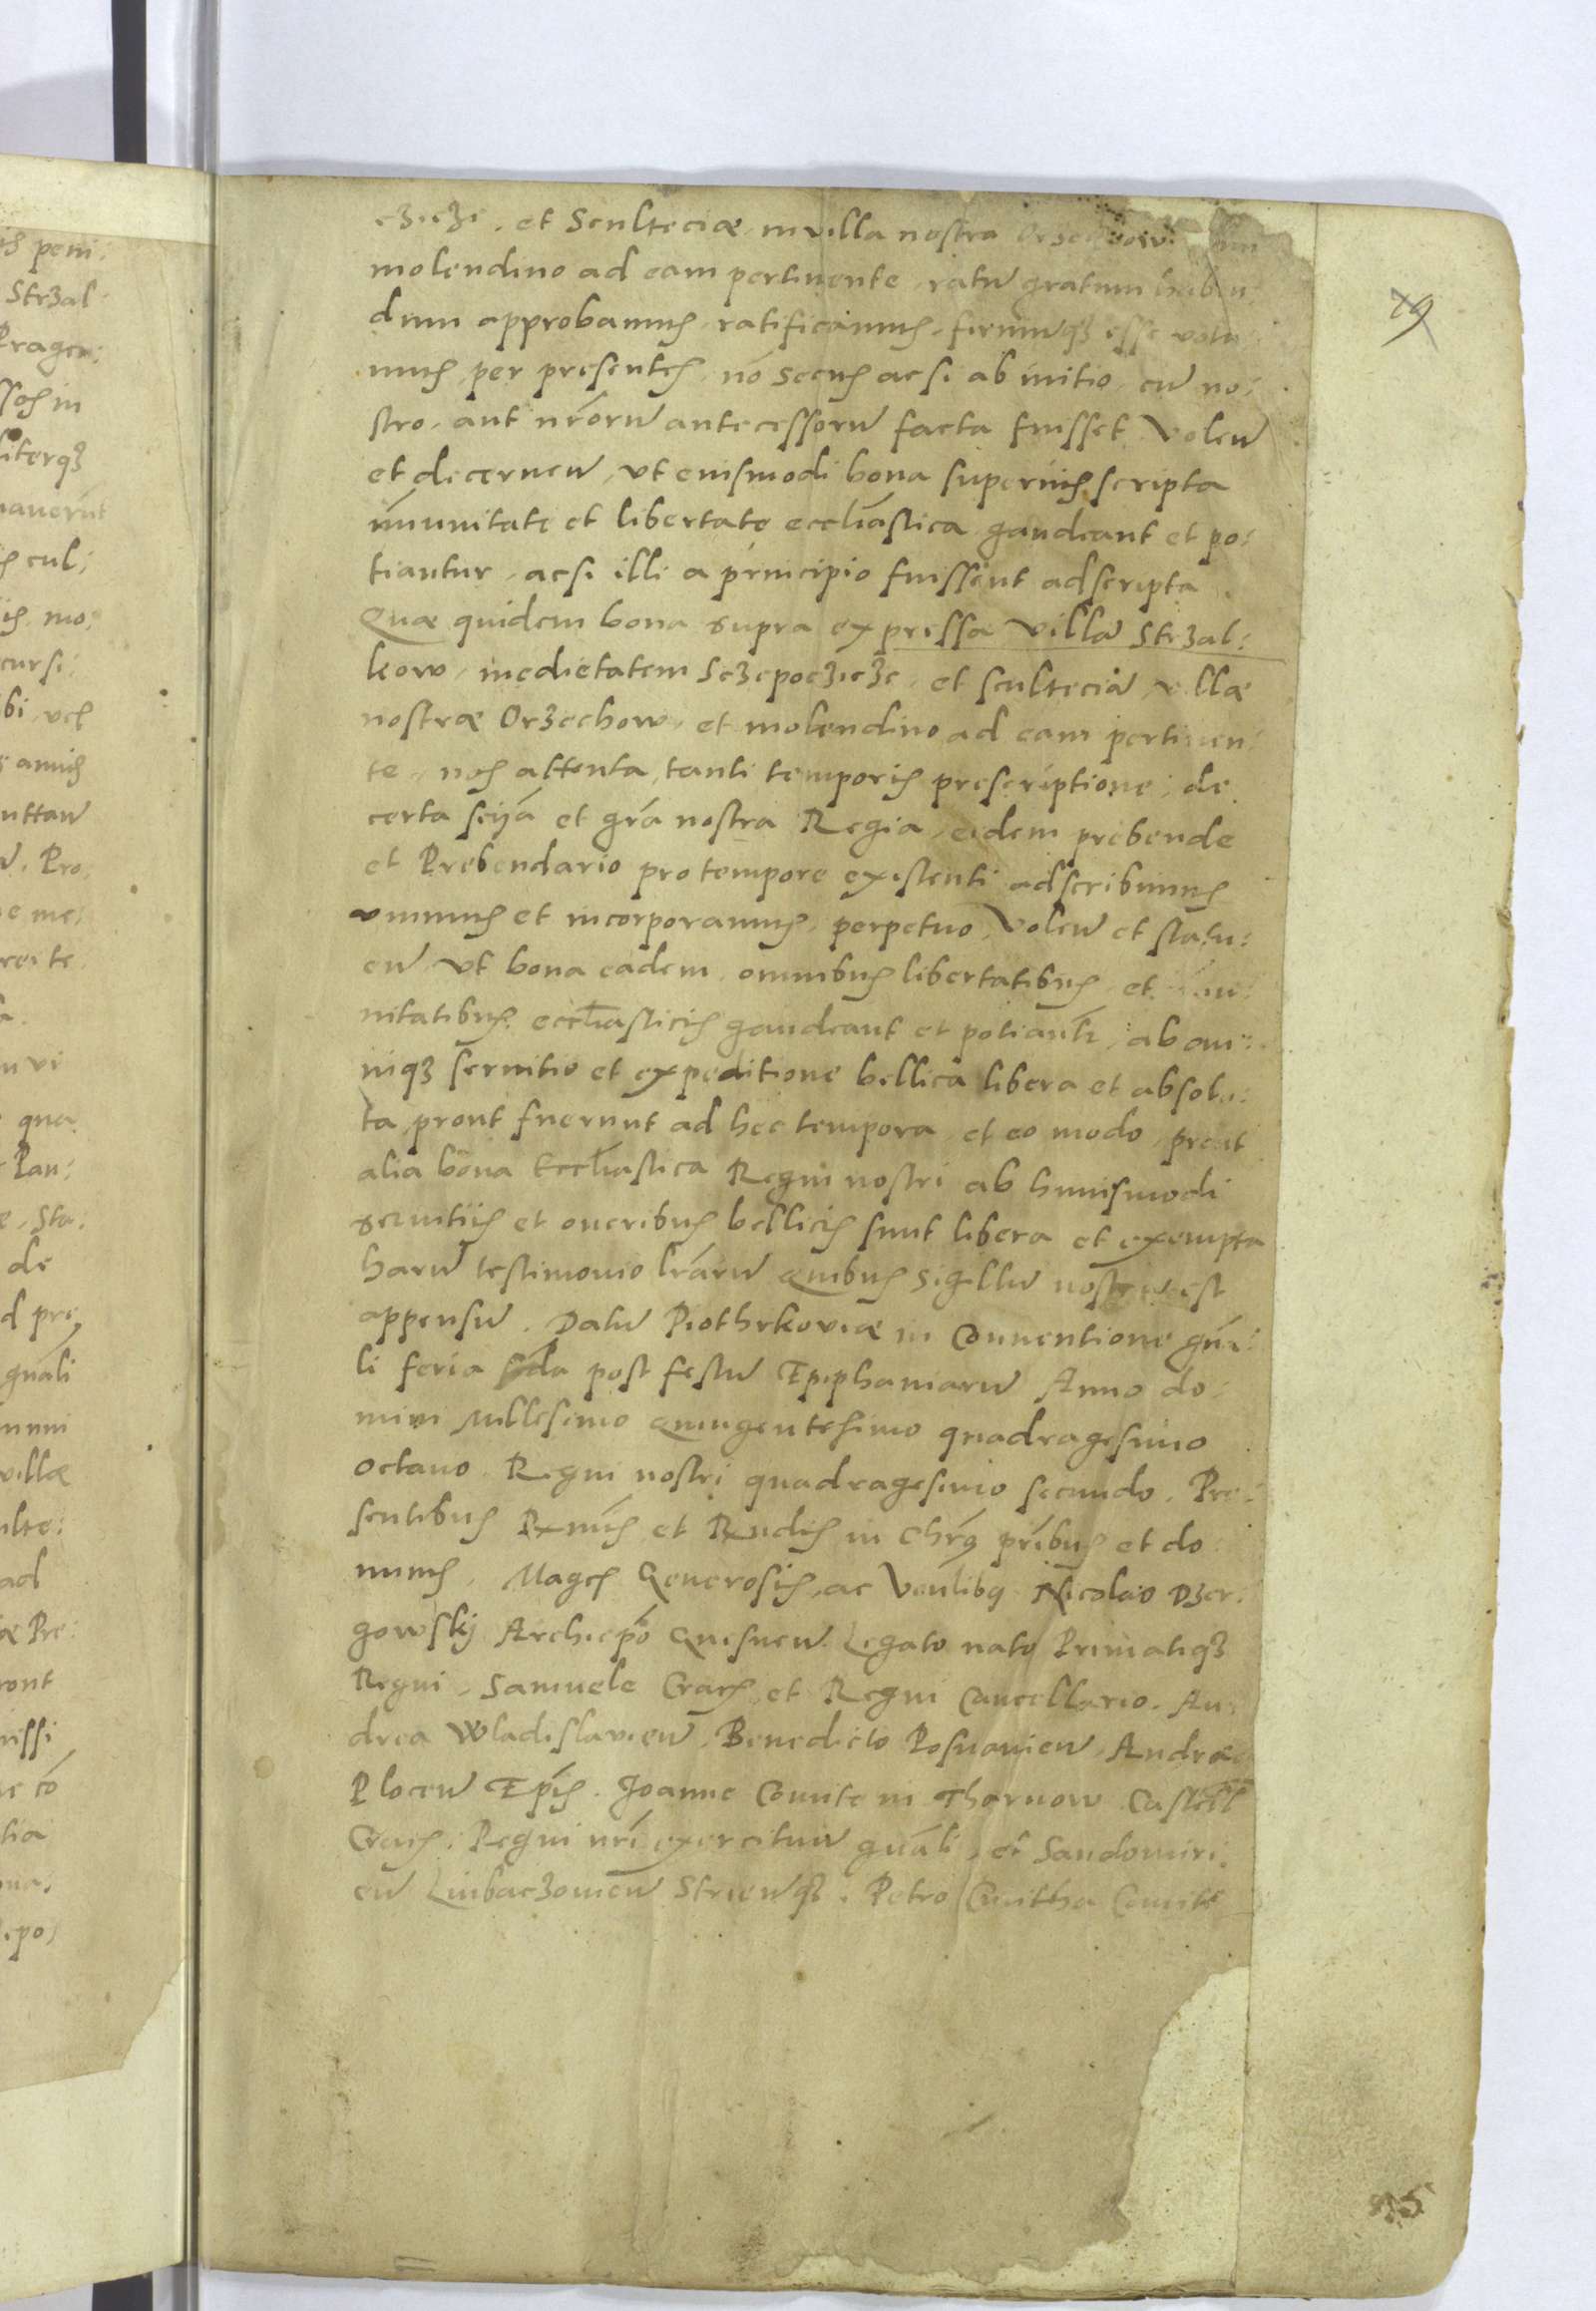 cziczi. et Sculteciæ in villa nostra
molendino ad eam pertinente, ratũ gratum haben:
dum approbamus, ratificamus, firmũqз esse volu:
mus, per presentes, nõ secus ac si ab initio, cũ no:
stro, aut nrõrũ antecessorũ facta fuisset Volen̄
et decernen̄, vt eiusmodi bona superius scripta
im̃unitate et libertate eccliãstica gaudeant et po:
tiantur, acsi illi a principio fuissent adscripta
Quæ quidem bona supra expressa villã Strzal:
kow, medietatem Sczepoczicze, et sculteciã, villæ
nostræ Orzechow, et molendino ad eam pertinen:
te, nos attenta, tanti temporis prescriptione, de
certa sciiã et grã nostra Regia, eidem prebende
et Prebendario pro tempore existenti adscribimus
vnimus et incorporamus, perpetuo, Volen̄ et statu:
en̄, vt bona eadem, omnibus libertatibus, et
nitatibus eccliãsticis gaudeant et potiantr, ab om:
niqз seruitio et expeditione bellica libera et absolu:
ta, prout fuerunt ad hec tempora, et eo modo, prout
alia bona Eccliãstica Regni nostri ab huiusmodi
seruitiis et oneribus bellicis sunt libera et exempta
harũ testimonio lrãrũ quibus sigillũ nostrũ est
appensũ. Datũ Piothrkoviæ in Conuentione gña:
li feria sc̃da post festũ Epiphaniarũ Anno do:
mini Millesimo Quingentesimo quadragesimo
octauo Regni nostri quadragesimo secundo. Pre:
sentibus Rx̃mis et Rx̃ndis in Chrõ prĩbus et do
minis, Magcis Generosis, ac Venlibq Nicolao Dzer:
gowskij Archiepõ Gnesnen̄ Legato nato Primatiqз
Regni, Samuele Cracs, et Regni Cancellario. An:
drea Wladislauien̄, Benedicto Posnanien̄, Andrea
Plocen̄ Ep̃is. Joanne Comite in Tharnow Castell
Cracs, Regni nrĩ exercituũ gnãli, et Sandomiri:
en̄ Liubaczouien̄ Strien̄qз. Petro Cmitha Comite